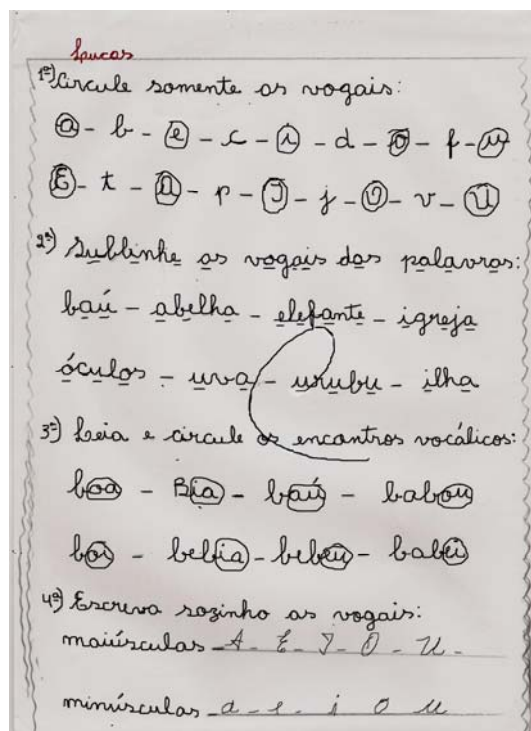 Lucas
1ª) Circule somente as vogais:
a - b - e - c - i - d - o - f - u
E - t - A - p - I - j - O - v - U
2ª) Sublinhe as vogais das palavras:
baú - abelha - elefante - igreja
óculos - uva - urubu - ilha
3ª) Leia e circule os encontros vocálicos:
boa - Bia - baú - babou
boi - bebia - bebeu - babei
4ª) Escreva sozinho as vogais:
maiúsculas A - E - I - O - U -
minúsculas a - e - i o u